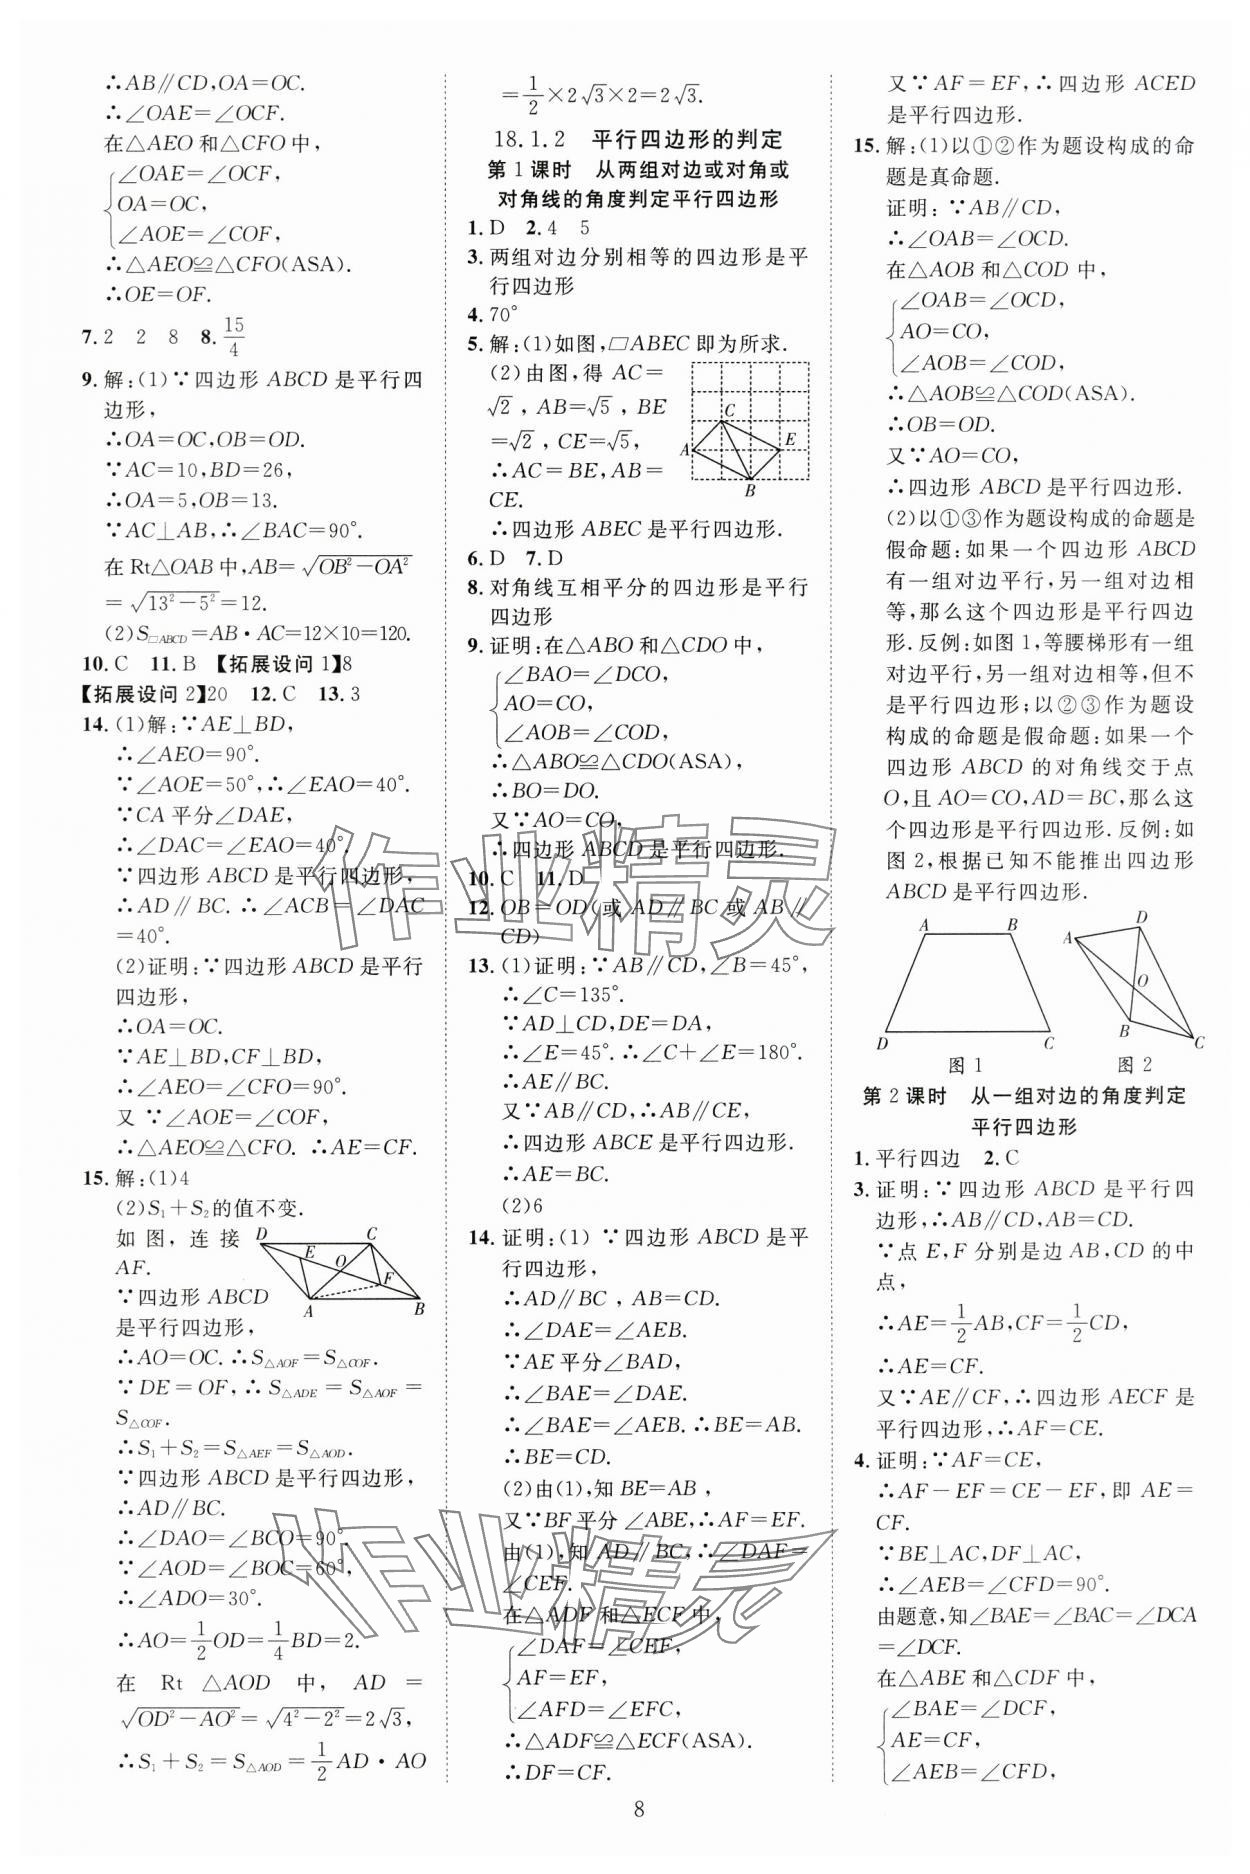 ∴AB∥CD,OA=OC.
∴∠OAE=∠OCF.
在△AEO和△CFO中,
∠OAE=∠OCF,
OA=OC,
∠AOE=∠COF,
∴△AEO≌△CFO(ASA).
∴OE=OF.
7.2 2 8 8.15/4
9.解:(1)∵四边形ABCD是平行四
边形,
∴OA=OC,OB=OD.
∵AC=10,BD=26,
∴OA=5,OB=13.
∵AC⊥AB,∴∠BAC=90°.
在Rt△OAB中,AB=√(OB²-OA²)
=√(13²-5²)=12.
(2)S□ABCD=AB·AC=12×10=120.
10.C 11.B 【拓展设问1】8
【拓展设问2】20 12.C 13.3
14.(1)解:∵AE⊥BD,
∴∠AEO=90°.
∵∠AOE=50°,∴∠EAO=40°.
∵CA平分∠DAE,
∴∠DAC=∠EAO=40°.
∵四边形ABCD是平行四边形,
∴AD∥BC.∴∠ACB=∠DAC
=40°.
(2)证明:∵四边形ABCD是平行
四边形,
∴OA=OC.
∵AE⊥BD,CF⊥BD,
∴∠AEO=∠CFO=90°.
又∵∠AOE=∠COF,
∴△AEO≌△CFO. ∴AE=CF.
15.解:(1)4
(2)S₁+S₂的值不变.
如图,连接
AF.
D C E O F A B
∵四边形ABCD
是平行四边形,
∴AO=OC.∴S△AOF=S△COF.
∵DE=OF,∴S△ADE=S△AOF=
S△COF.
∴S₁+S₂=S△AEF=S△AOD.
∵四边形ABCD是平行四边形,
∴AD∥BC.
∴∠DAO=∠BCO=90°.
∵∠AOD=∠BOC=60°,
∴∠ADO=30°.
∴AO=1/2OD=1/4BD=2.
在Rt△AOD中,AD=
√(OD²-AO²)=√(4²-2²)=2√3,
∴S₁+S₂=S△AOD=1/2AD·AO
=1/2×2√3×2=2√3.
18.1.2 平行四边形的判定
第1课时 从两组对边或对角或
对角线的角度判定平行四边形
1.D 2.4 5
3.两组对边分别相等的四边形是平
行四边形
4.70°
5.解:(1)如图,□ABEC即为所求.
(2)由图,得AC=
√2,AB=√5,BE
=√2,CE=√5,
∴AC=BE,AB=
CE.
C A E B
∴四边形ABEC是平行四边形.
6.D 7.D
8.对角线互相平分的四边形是平行
四边形
9.证明:在△ABO和△CDO中,
∠BAO=∠DCO,
AO=CO,
∠AOB=∠COD,
∴△ABO≌△CDO(ASA),
∴BO=DO.
又∵AO=CO,
∴四边形ABCD是平行四边形.
10.C 11.D
12.OB=OD(或AD∥BC或AB∥
CD)
13.(1)证明:∵AB∥CD,∠B=45°,
∴∠C=135°.
∵AD⊥CD,DE=DA,
∴∠E=45°.∴∠C+∠E=180°.
∴AE∥BC.
又∵AB∥CD,∴AB∥CE,
∴四边形ABCE是平行四边形.
∴AE=BC.
(2)6
14.证明:(1)∵四边形ABCD是平
行四边形,
∴AD∥BC,AB=CD.
∴∠DAE=∠AEB.
∵AE平分∠BAD,
∴∠BAE=∠DAE.
∴∠BAE=∠AEB.∴BE=AB.
∴BE=CD.
(2)由(1),知BE=AB,
又∵BF平分∠ABE,∴AF=EF.
由(1),知AD∥BC,∴∠DAF=
∠CEF.
在△ADF和△ECF中,
∠DAF=∠CEF,
AF=EF,
∠AFD=∠EFC,
∴△ADF≌△ECF(ASA).
∴DF=CF.
又∵AF=EF,∴四边形ACED
是平行四边形.
15.解:(1)以①②作为题设构成的命
题是真命题.
证明:∵AB∥CD,
∴∠OAB=∠OCD.
在△AOB和△COD中,
∠OAB=∠OCD,
AO=CO,
∠AOB=∠COD,
∴△AOB≌△COD(ASA).
∴OB=OD.
又∵AO=CO,
∴四边形ABCD是平行四边形.
(2)以①③作为题设构成的命题是
假命题:如果一个四边形ABCD
有一组对边平行,另一组对边相
等,那么这个四边形是平行四边
形.反例:如图1,等腰梯形有一组
对边平行,另一组对边相等,但不
是平行四边形;以②③作为题设
构成的命题是假命题:如果一个
四边形ABCD的对角线交于点
O,且AO=CO,AD=BC,那么这
个四边形是平行四边形.反例:如
图2,根据已知不能推出四边形
ABCD是平行四边形.
A B D C
A D O B C
图1 图2
第2课时 从一组对边的角度判定
平行四边形
1.平行四边 2.C
3.证明:∵四边形ABCD是平行四
边形,∴AB∥CD,AB=CD.
∵点E,F分别是边AB,CD的中
点,
∴AE=1/2AB,CF=1/2CD,
∴AE=CF.
又∵AE∥CF,∴四边形AECF是
平行四边形,∴AF=CE.
4.证明:∵AF=CE,
∴AF-EF=CE-EF,即AE=
CF.
∵BE⊥AC,DF⊥AC,
∴∠AEB=∠CFD=90°.
由题意,知∠BAE=∠BAC=∠DCA
=∠DCF.
在△ABE和△CDF中,
∠BAE=∠DCF,
AE=CF,
∠AEB=∠CFD,
8
作业精灵
作业精灵